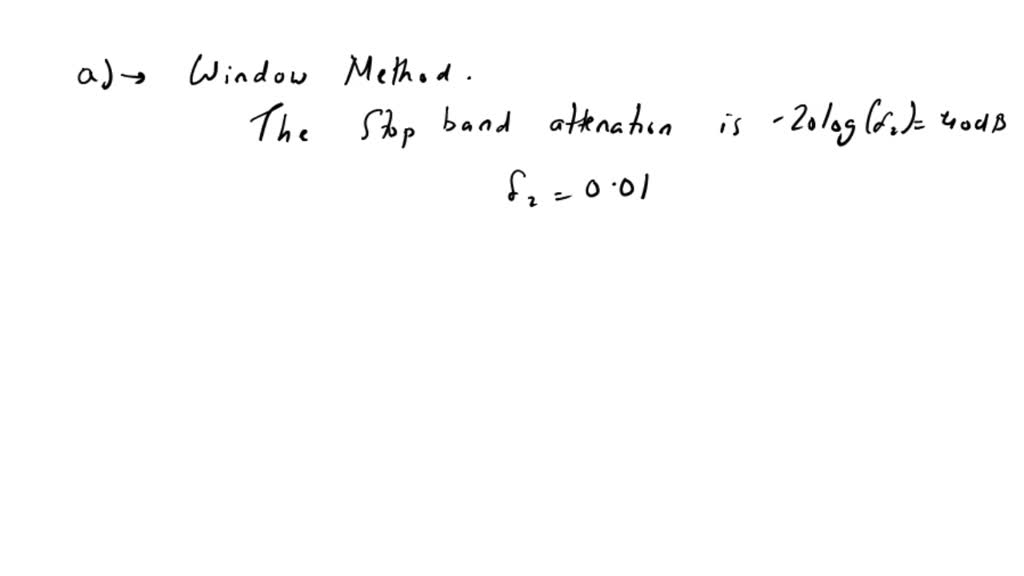 a) → Window Method.
The Stop band attenation is -20log(δ₂)= 40dB
δ₂ = 0.01